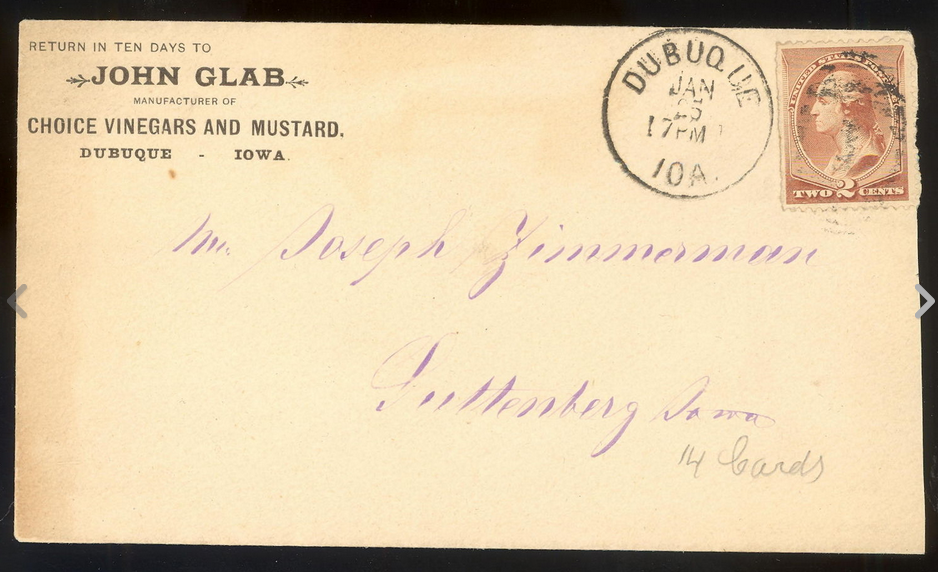 RETURN IN TEN DAYS TO
JOHN GLAB
MANUFACTURER OF
CHOICE VINEGARS AND MUSTARD.
DUBUQUE - IOWA.
DUBUQUE
JAN
25
7PM
IOA.
UNITED STATES
TWO 2 CENTS
Mr. Joseph Zimmerman
Guttenberg Iowa
14 Cards